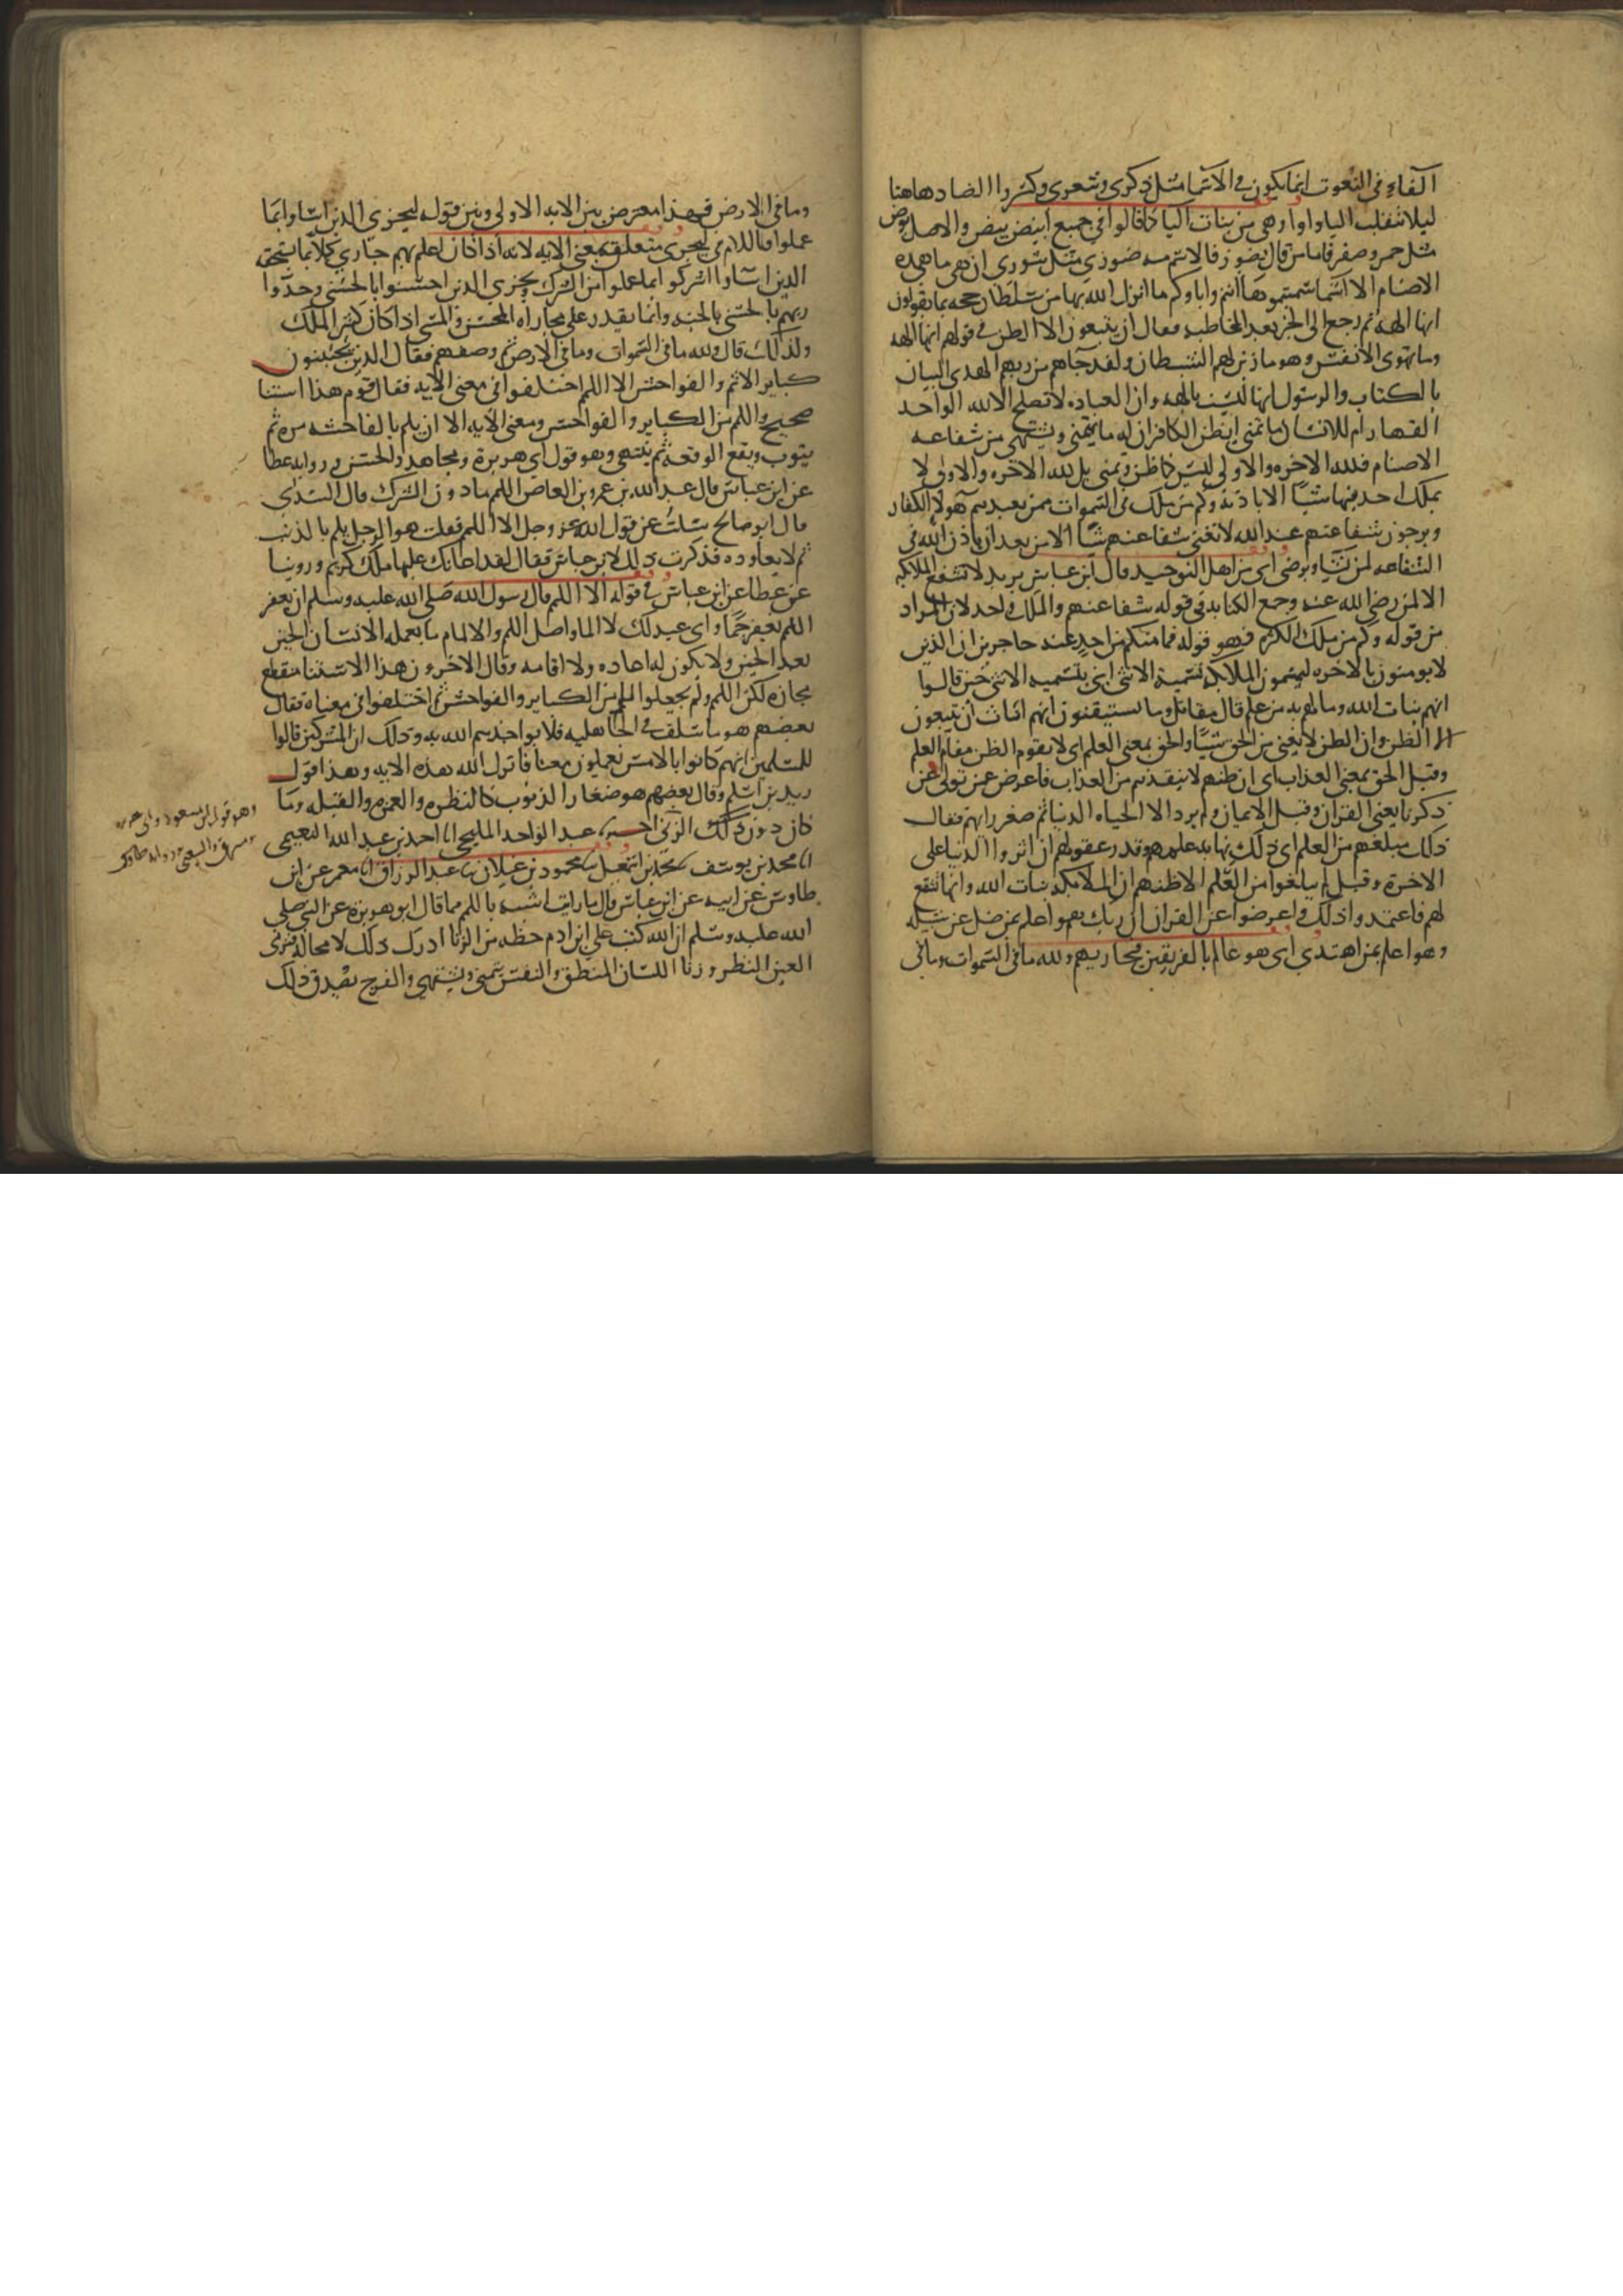 الفاء في النعوت انما يكون في الاسما مثل ذكرى وشعرى وكسروا الضاد هاهنا
ليلا تنقلب اليا واوا وهي من بنات اليا كما قالوا في جمع ابيض بيض والاصل بوض
مثل حمر وصفر فاما من قال يضوز فالاسم منه ضوزي مثل شورى ان هي ما هذه
الاصنام الا اسما سميتموها انتم واباوكم ما انزل الله بها من سلطان حجه بما تقولون
انها الهه ثم رجع الى الخبر بعد المخاطبه فقال ان يتبعون الا الظن في قولهم انها الهه
وما تهوى الانفس وهو ما زين لهم الشيطان ولقد جاهم من ربهم الهدى البيان
بالكتاب والرسول انها ليست بالهه وان العباده لا تصلح الا لله الواحد
القهار ام للانسان ما تمنى ايظن الكافر ان له ما يتمنى ويشتهي من شفاعه
الاصنام فلله الاخره والاولى ليس كما ظن وتمنى بل لله الاخره والاولى لا
يملك احد فيها شيا الا باذنه وكم من ملك في السموات ممن يعبدهم هولا الكفار
ويرجون شفاعتهم عند الله لا تغنى شفاعتهم شيا الا من بعد ان ياذن الله في
الشفاعه لمن يشا ويرضى اى من اهل التوحيد قال ابن عباس يريد لا تشفع الملايكه
الا لمن رضي الله عنه وجمع الكنايه في قوله شفاعتهم والملك واحد لان المراد
من قوله وكم من ملك الكثره فهو قوله فما منكم من احد عنه حاجزين ان الذين
لا يومنون بالاخره ليسمون الملايكه تسمية الانثى اي بتسميه الانثى حين قالوا
انهم بنات الله وما لهم به من علم قال مقاتل وما يستيقنون انهم اناث ان يتبعون
الا الظن وان الظن لا يغني من الحق شيا والحق بمعنى العلم اى لا يقوم الظن مقام العلم
وقيل الحق بمعنى العذاب اى ان ظنهم لا ينقذهم من العذاب فاعرض عن من تولى عن
ذكرنا يعني القران وقيل الايمان ولم يرد الا الحياه الدنيا ثم صغر رايهم فقال
ذلك مبلغهم من العلم اى ذلك نهايه علمهم وقدر عقولهم ان اثروا الدنيا على
الاخرة وقيل لم يبلغوا من العلم الا ظنهم ان الملايكه بنات الله وانها تشفع
لهم فاعتمدوا ذلك واعرضوا عن القران ان ربك هو اعلم بمن ضل عن سبيله
وهو اعلم بمن اهتدي اى هو عالم بالفريقين فيجازيهم ولله ما في السموات وما في
وما في الارض فهذا معترض بين الايه الاولى وبين قوله ليجزي الذين اساوا بما
عملوا فاللام في ليجزى متعلق بمعنى الايه لانه اذا كان اعلم بهم جازى كلا بما يستحقه
الذين اساوا اشركوا بما عملوا من الشرك ويجزى الذين احسنوا بالحسنى وحدوا
ربهم بالحسنى بالجنه وانما يقدر على مجازاه المحسن والمسي اذا كان كثير الملك
ولذلك قال ولله ما في السموات وما في الارض ثم وصفهم فقال الذين يجتنبون
كباير الاثم والفواحش الا اللمم اختلفوا في معنى الايه فقال قوم هذا استثنا
صحيح واللمم من الكباير والفواحش ومعنى الايه الا ان يلم بالفاحشه مره ثم
يتوب ويقع الوقعه ثم ينتهي وهو قول ابى هريرة ومجاهد والحسن وروايه عطا
عن ابن عباس قال عبد الله بن عمرو بن العاص اللمم ما دون الشرك قال السدي
قال ابو صالح سئلت عن قول الله عز وجل الا اللمم فقلت هو الرجل يلم بالذنب
ثم لا يعاوده فذكرت ذلك لابن عباس فقال لقد اعانك عليها ملك كريم وروينا
عن عطا عن ابن عباس في قوله الا اللمم قال رسول الله صلى الله عليه وسلم ان تغفر
اللهم تغفر جما واى عبد لك لا الما واصل اللمم والالمام ما يعمله الانسان الحين
بعد الحين ولا يكون له اعاده ولا اقامه وقال الاخرون هذا الاستثنا منقطع
مجازه لكن اللمم ولم يجعلوا اللمم من الكباير والفواحش ثم اختلفوا في معناه فقال
بعضهم هو ما سلف في الجاهليه فلا يواخذهم الله به وذلك ان المشركين قالوا
للمسلمين انهم كانوا بالامس يعملون معنا فانزل الله هذه الايه وهذا قول
زيد بن اسلم وقال بعضهم هو صغار الذنوب كالنظره والغمزه والقبله وما
كان دون ذلك الزنى اخبرنا عبد الواحد المليحي انا احمد بن عبد الله النعيمي
انا محمد بن يوسف نا محمد بن اسمعيل نا محمود بن غيلان نا عبد الرزاق انا معمر عن ابن
طاوس عن ابيه عن ابن عباس قال ما رايت اشبه باللمم مما قال ابو هريرة عن النبي صلى
الله عليه وسلم ان الله كتب على ابن ادم حظه من الزنا ادرك ذلك لا محالة فزنى
العين النظر وزنا اللسان المنطق والنفس تتمنى وتشتهي والفرج يصدق ذلك
وهو قول ابن مسعود وابى هريره
ومسروق والشعبي وروايه طاوس